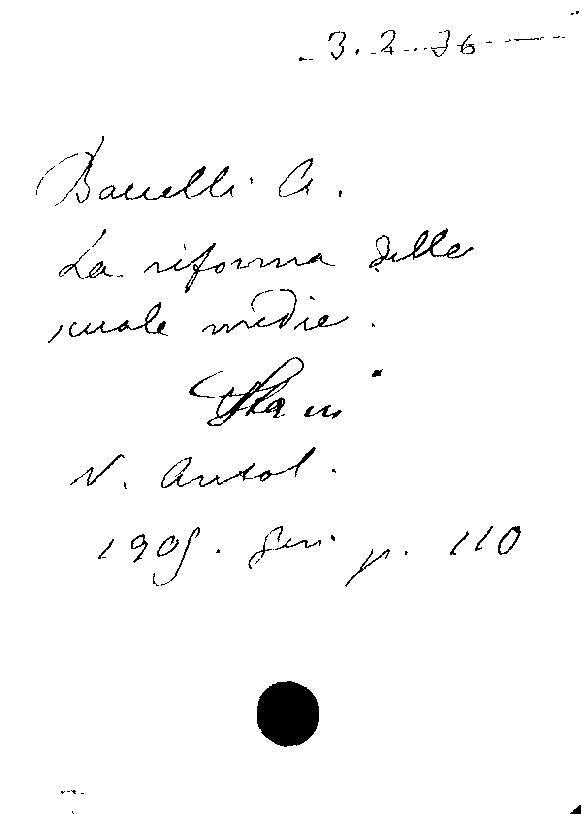 3.2.36
Baccelli A.
La riforma delle
scuole medie.
N. Antol.
1905. gen. p. 110